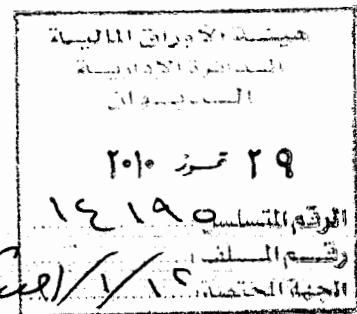 هيئة الأوراق المالية
الدائرة الإدارية
الديوان
٢٩ تموز ٢٠١٠
الرقم المتسلسل ١٤١٩٥
رقم الملف
الجهة المختصة ١٢/١/